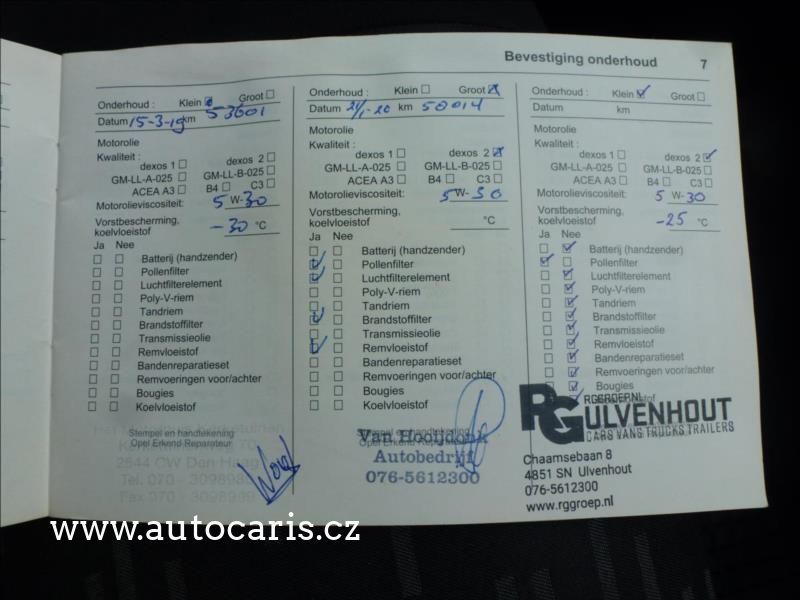 Bevestiging onderhoud 7
Onderhoud : Klein Groot
Datum 15-3-19 km 53601
Motorolie
Kwaliteit :
dexos 1 dexos 2
GM-LL-A-025 GM-LL-B-025
ACEA A3 B4 C3
Motorolieviscositeit: 5 W-30
Vorstbescherming,
koelvloeistof -30 °C
Ja Nee
Batterij (handzender)
Pollenfilter
Luchtfilterelement
Poly-V-riem
Tandriem
Brandstoffilter
Transmissieolie
Remvloeistof
Bandenreparatieset
Remvoeringen voor/achter
Bougies
Koelvloeistof
Stempel en handtekening
Opel Erkend Reparateur
2544 CW Den Haag
Tel. 070 -
Fax 070 -
Onderhoud : Klein Groot
Datum 21/1-20 km 58014
Motorolie
Kwaliteit :
dexos 1 dexos 2
GM-LL-A-025 GM-LL-B-025
ACEA A3 B4 C3
Motorolieviscositeit: 5 W-30
Vorstbescherming,
koelvloeistof °C
Ja Nee
Batterij (handzender)
Pollenfilter
Luchtfilterelement
Poly-V-riem
Tandriem
Brandstoffilter
Transmissieolie
Remvloeistof
Bandenreparatieset
Remvoeringen voor/achter
Bougies
Koelvloeistof
Stempel en handtekening
Opel Erkend Reparateur
Van Hooijdonk
Autobedrijf
076-5612300
Onderhoud : Klein Groot
Datum km
Motorolie
Kwaliteit :
dexos 1 dexos 2
GM-LL-A-025 GM-LL-B-025
ACEA A3 B4 C3
Motorolieviscositeit: 5 W-30
Vorstbescherming,
koelvloeistof -25 °C
Ja Nee
Batterij (handzender)
Pollenfilter
Luchtfilterelement
Poly-V-riem
Tandriem
Brandstoffilter
Transmissieolie
Remvloeistof
Bandenreparatieset
Remvoeringen voor/achter
Bougies
RGGROEP.NL
RG ULVENHOUT
CARS VANS TRUCKS TRAILERS
Chaamsebaan 8
4851 SN Ulvenhout
076-5612300
www.rggroep.nl
www.autocaris.cz